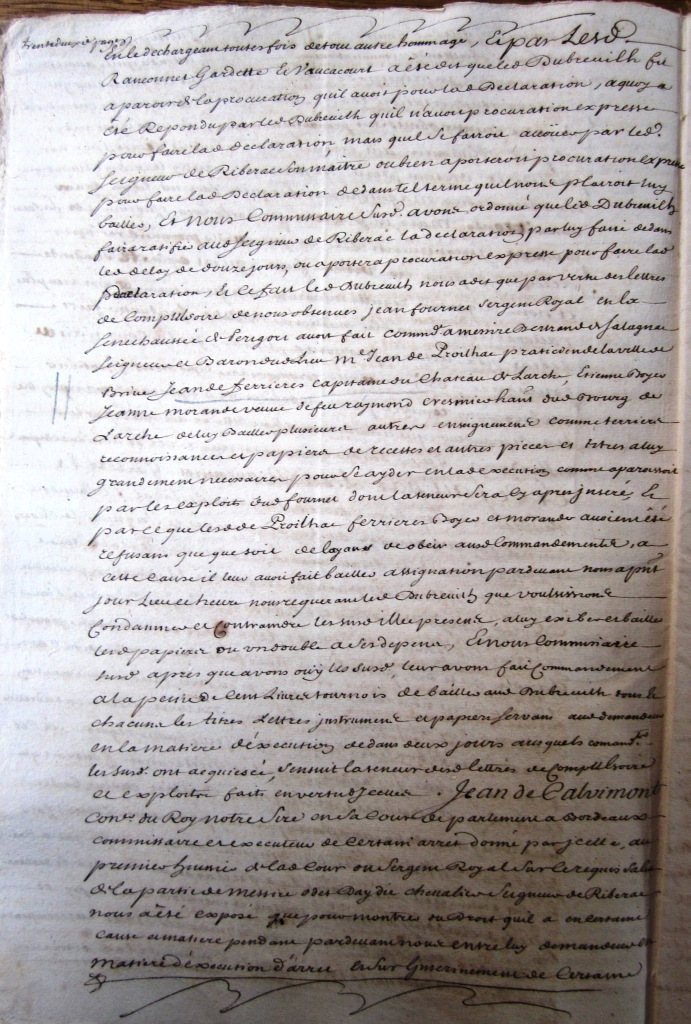 trente deux.e page
En le dechargeant toutes fois de tout autre hommage, Et par Lesd.
Ranconnet Gardette Et Vaucacourt a été dit que led Dubreuilh fit
aparoir de la procuration quil avoit pour lad Declaration, a quoy a
été Repondu par led Dubreuilh quil n'avoit procuration expresse
pour faire lad declaration, mais quil se fairoit avoüer par led.
seigneur de Riberac son maitre ou bien aporteroit procuration expresse
pour faire lad Declaration dedans tel terme quil nous plairoit luy
bailler, Et nous Commissaire susd. avons ordonné que led Dubreuilh
faira ratifier aud seigneur de Riberac la declaration par luy faite dedans
le delay de douze jours, ou aportera procuration expresse pour faire lad
Declaration, Et ce fait led Dubreuilh nous a dit que par vertu des lettres
de Compulsoire de nous obtenues jean fournet sergent Royal en la
senechaussée de Perigort avoit fait commd. a messire Bertrand de Salagnac
seigneur et Baron dud Lieu M.e Jean de Proilhac praticien de la ville de
Brive Jean de ferrieres capitaine du Chateau de Larche, Etienne Boyer
Jeanne morande veuve de feu raymond du bourg de
Larche de luy Bailler plusieurs autres enseignements comme terriers
reconnoissances et papiers de recettes et autres pieces et titres a luy
grandement necessaires pour se ayder en lad execution comme aparoissoit
par les exploits dud fournet dont la teneur sera cy apres inseré, Et
parce que lesd de Proilhac ferrieres Boyer et morande avoient été
refusans que que soit delayans de obeir aud Commandements, a
cette cause il leur avoit fait bailler assignation pardevant nous a pnt
jour Lieu et heure nous requerant led Dubreuilh que voulsissions
Condamner et Contraindre les susd illec presens, a luy exiber et bailler
lesd papiers ou un double a ses depens, Et nous Commissaire
susd apres que avons ouy les susd. leur avons fait Commandement
a la peine de Cent Livres tournois de bailler aud Dubreuilh tous et
chacuns les titres Lettres instrumens et papiers servans aud demandeur
en la matiere d'éxecution dedans deux jours ausquels comand.ts
les susd. ont acquiescé, s'ensuit la teneur desd lettres de Compulsoire
et exploits faits en vertu d'Icelles. Jean de Calvimont
Con.er du Roy notre Sire en sa Cour de parlement a Bordeaux
commissaire et executeur de Certain arret donné par jcelle, au
premier huissier de lad Cour ou sergent Royal sur ce requis salut
de la partie de messire odet Daydie chevallier seigneur de Riberac
nous a été exposé que pour montrer du Droit quil a en certaine
cause et matiere pendant pardevant nous entre luy demandeur en
matiere d'éxecution d'arret et sur Interinement de Certaine